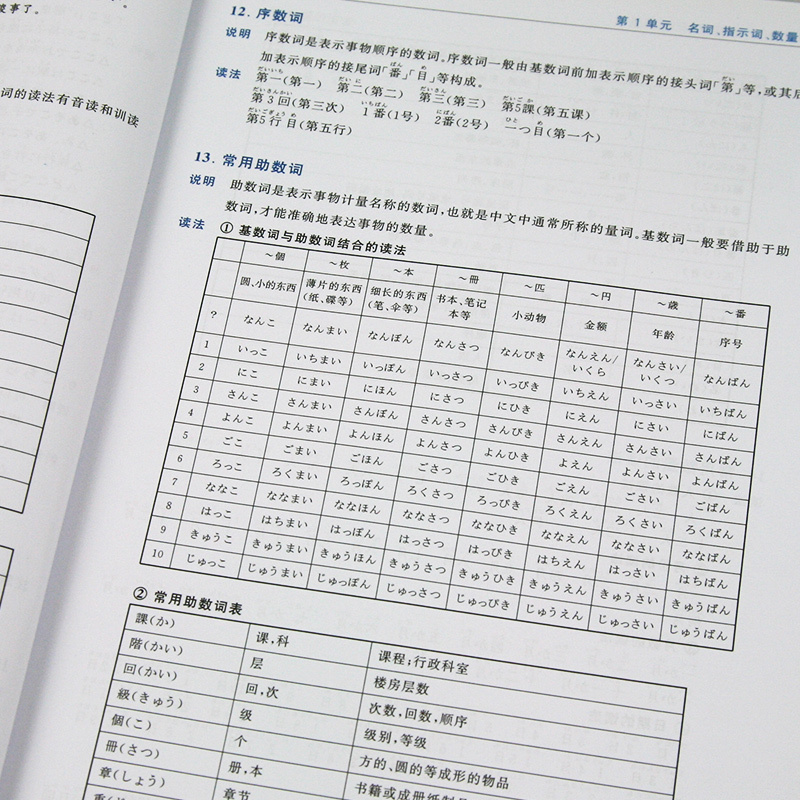 彼事了。
词的读法有音读和训读
第1单元 名词、指示词、数量
12. 序数词
说明 序数词是表示事物顺序的数词。序数词一般由基数词前加表示顺序的接头词「第」等,或其后
加表示顺序的接尾词「番」「目」等构成。
读法 第一(第一) 第二(第二) 第三(第三) 第5課(第五课)
第3回(第三次) 1番(1号) 2番(2号) 一つ目(第一个)
第5行目(第五行)
13. 常用助数词
说明 助数词是表示事物计量名称的数词,也就是中文中通常所称的量词。基数词一般要借助于助
数词,才能准确地表达事物的数量。
读法 ① 基数词与助数词结合的读法
~個 ~枚 ~本 ~冊 ~匹 ~円 ~歳 ~番
圆、小的东西 薄片的东西(纸、碟等) 细长的东西(笔、伞等) 书本、笔记本等 小动物 金额 年龄 序号
? なんこ なんまい なんぼん なんさつ なんびき なんえん/いくら なんさい/いくつ なんばん
1 いっこ いちまい いっぽん いっさつ いっぴき いちえん いっさい いちばん
2 にこ にまい にほん にさつ にひき にえん にさい にばん
3 さんこ さんまい さんぼん さんさつ さんびき さんえん さんさい さんばん
4 よんこ よんまい よんほん よんさつ よんひき よえん よんさい よんばん
5 ごこ ごまい ごほん ごさつ ごひき ごえん ごさい ごばん
6 ろっこ ろくまい ろっぽん ろくさつ ろっぴき ろくえん ろくさい ろくばん
7 ななこ ななまい ななほん ななさつ ななひき ななえん ななさい ななばん
8 はっこ はちまい はっぽん はっさつ はっぴき はちえん はっさい はちばん
9 きゅうこ きゅうまい きゅうほん きゅうさつ きゅうひき きゅうえん きゅうさい きゅうばん
10 じゅっこ じゅうまい じゅっぽん じゅっさつ じゅっぴき じゅうえん じゅっさい じゅうばん
② 常用助数词表
課(か) 课,科 课程;行政科室
階(かい) 层 楼房层数
回(かい) 回,次 次数,回数,顺序
級(きゅう) 级 级别,等级
個(こ) 个 方的、圆的等成形的物品
冊(さつ) 册,本 书籍或成册纸制
章(しょう) 章节